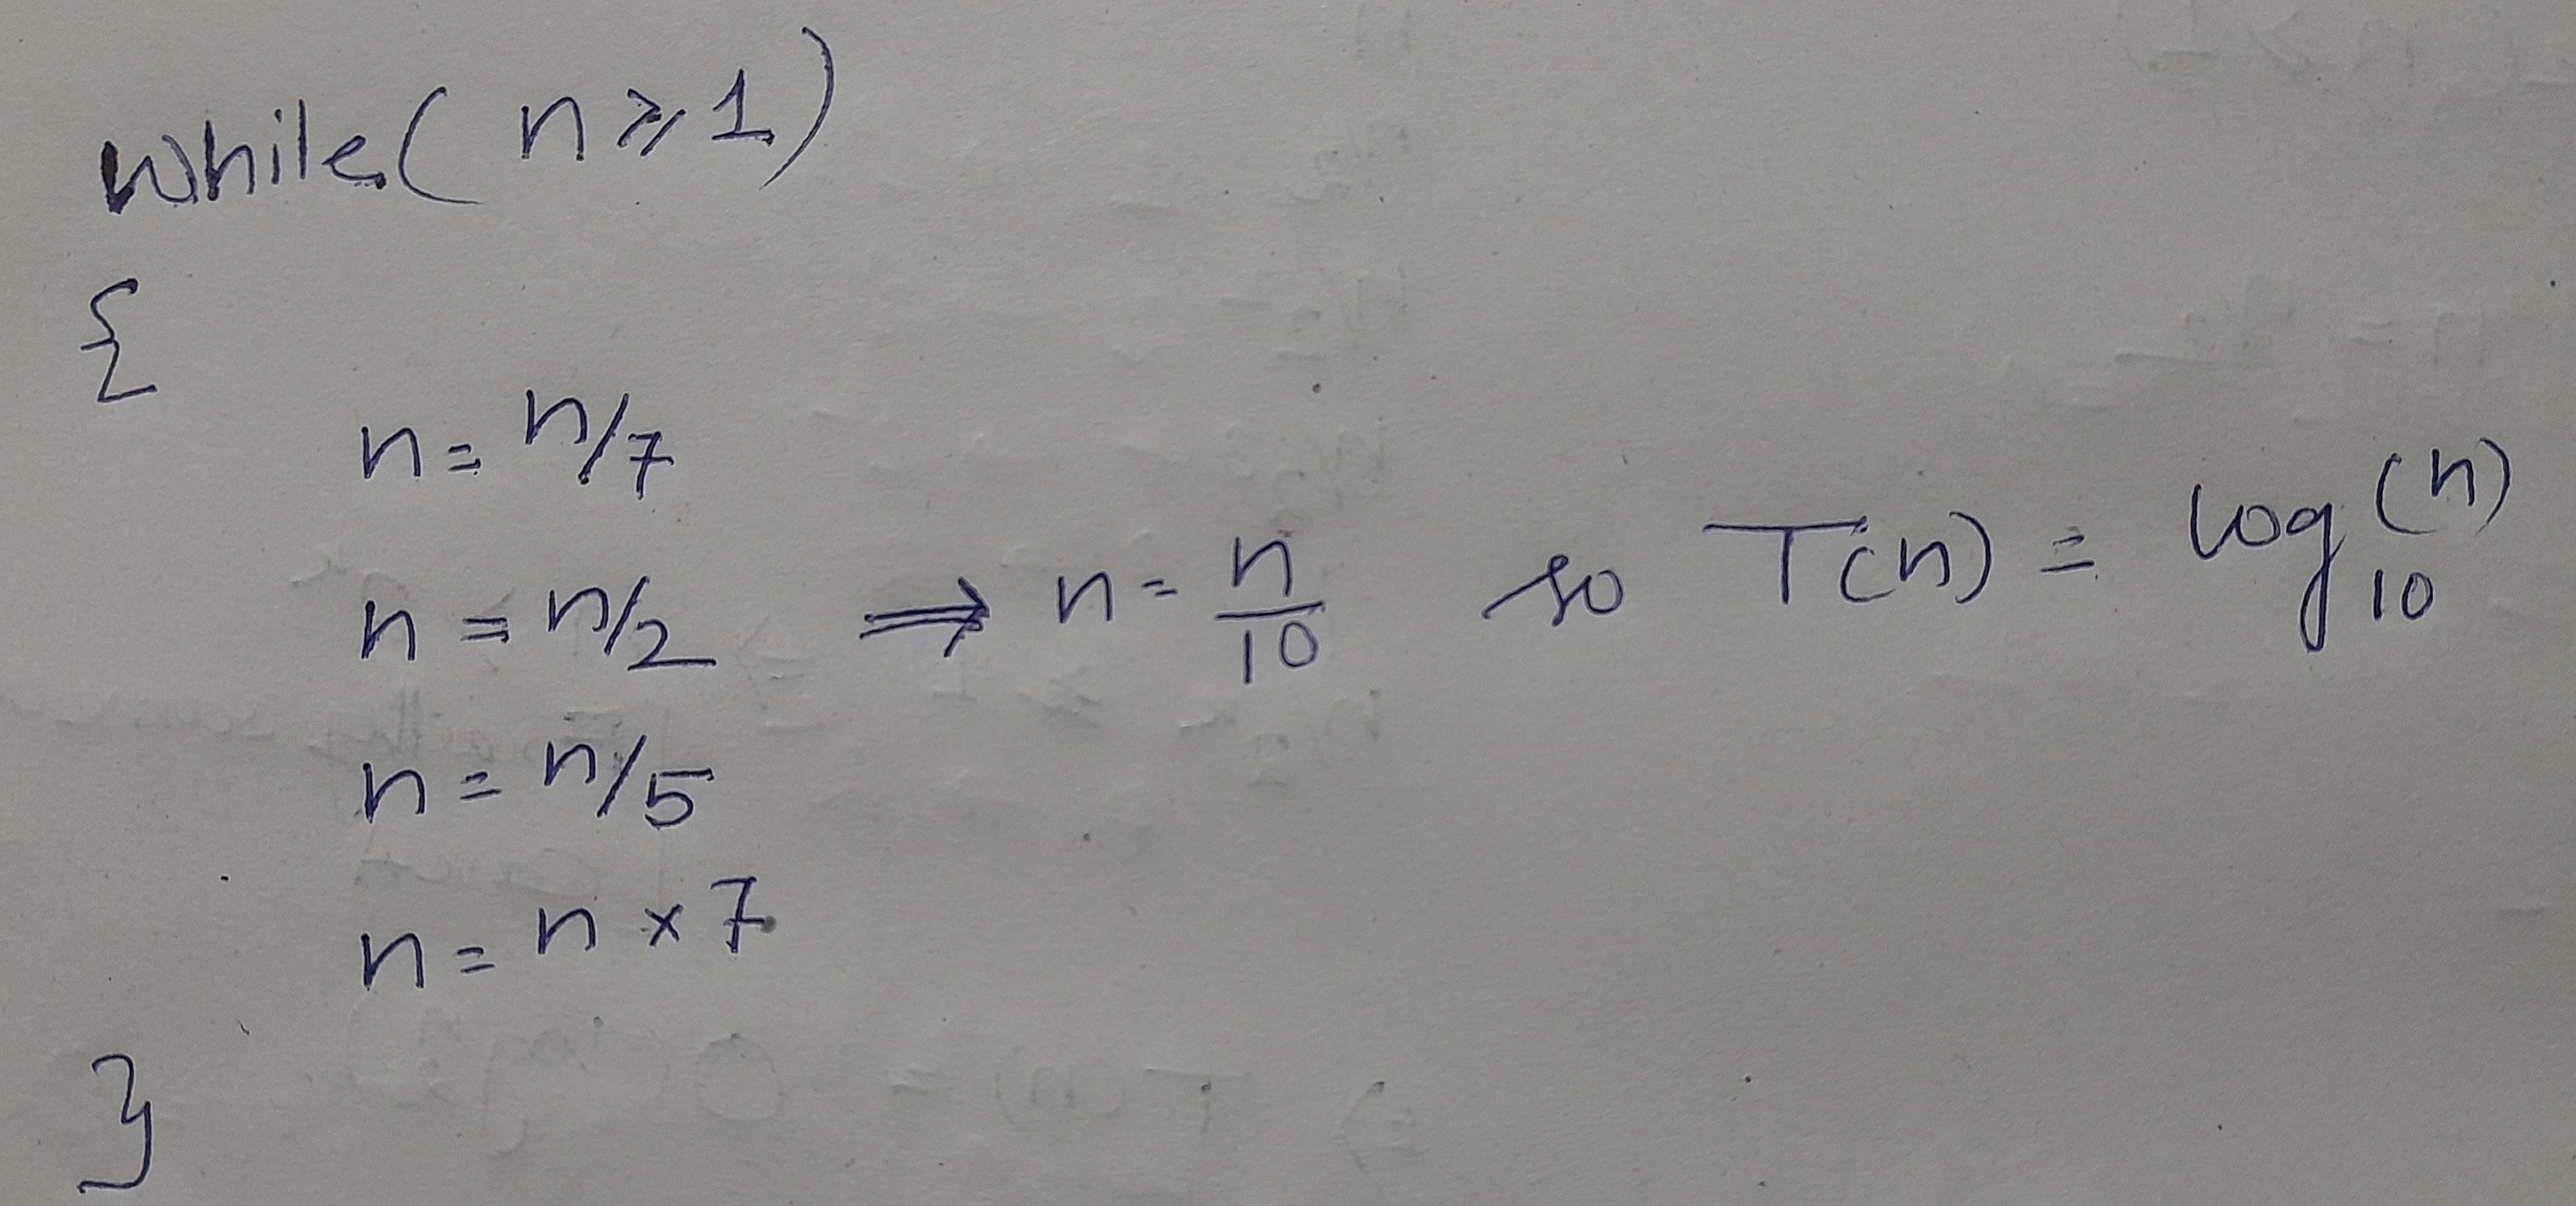 while( n ≥ 1 )
{
n = n/7
n = n/2 ⟹ n = n/10 so T(n) = log₁₀(n)
n = n/5
n = n × 7
}